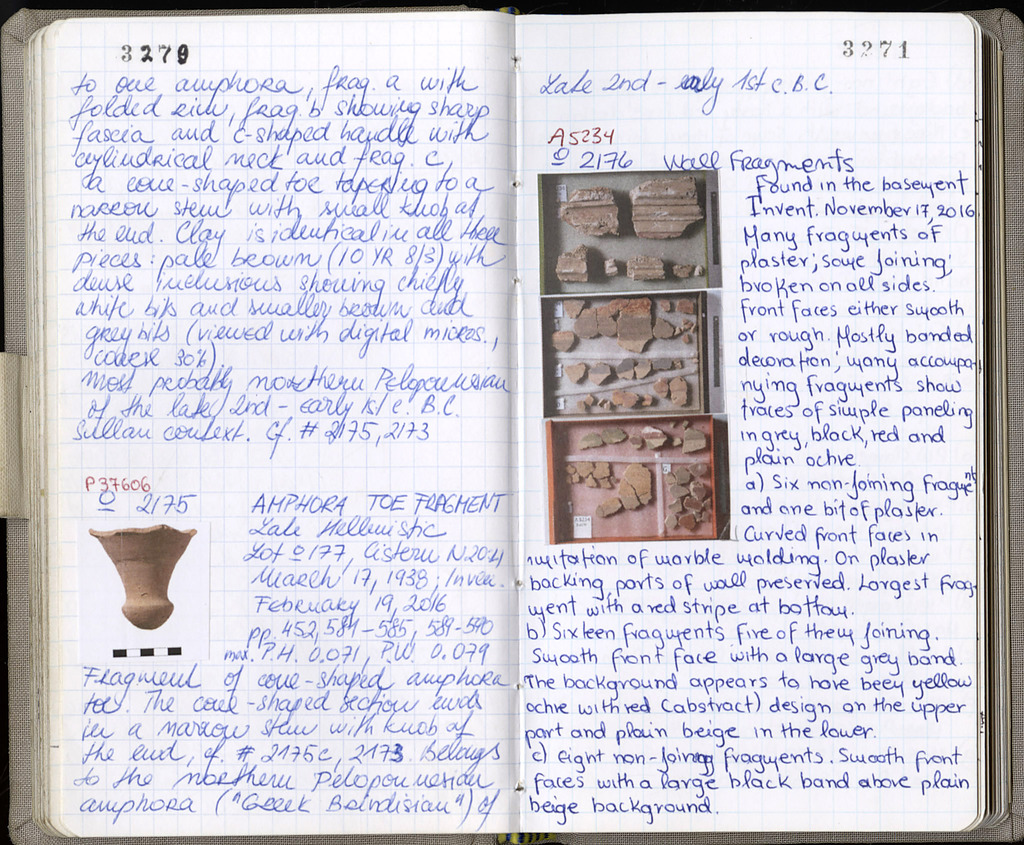 3279
to one amphora, frag. a with
folded rim, frag. b showing sharp
fascia and c-shaped handle with
cylindrical neck and frag. c,
a cone-shaped toe tapering to a
narrow stem with small knob at
the end. Clay is identical in all three
pieces: pale brown (10 YR 8/3) with
dense inclusions showing chiefly
white bits and smaller brown and
grey bits (viewed with digital micros.,
cover 30%)
Most probably northern Peloponnesian
of the late 2nd - early 1st c. B.C.
Sullan context. Cf. # 2175, 2173
P 37606
O 2175 AMPHORA TOE FRAGMENT
Late Hellenistic
Lot O 177, Cistern N 20:4
March 17, 1938; Inven.
February 19, 2016
pp. 452, 581-585, 589-590
max. P.H. 0.071, P.W. 0.079
Fragment of cone-shaped amphora
toe. The cone-shaped section ends
in a narrow stem with knob at
the end, cf. #, 2175c, 2173. Belongs
to the northern Peloponnesian
amphora ("Greek Brindisian") of
3271
Late 2nd - early 1st c. B.C.
A 5234
O 2176 Wall Fragments
Found in the basement
Invent. November 17, 2016.
Many fragments of
plaster; some joining;
broken on all sides.
Front faces either smooth
or rough. Mostly banded
decoration; many accompa-
nying fragments show
traces of simple paneling
in grey, black, red and
plain ochre.
a) Six non-joining fragment
and one bit of plaster.
Curved front faces in
imitation of marble molding. On plaster
backing parts of wall preserved. Largest frag-
ment with a red stripe at bottom.
b) Sixteen fragments five of them joining.
Smooth front face with a large grey band.
The background appears to have been yellow
ochre with red (abstract) design on the upper
part and plain beige in the lower.
c) Eight non-joining fragments. Smooth front
faces with a large black band above plain
beige background.